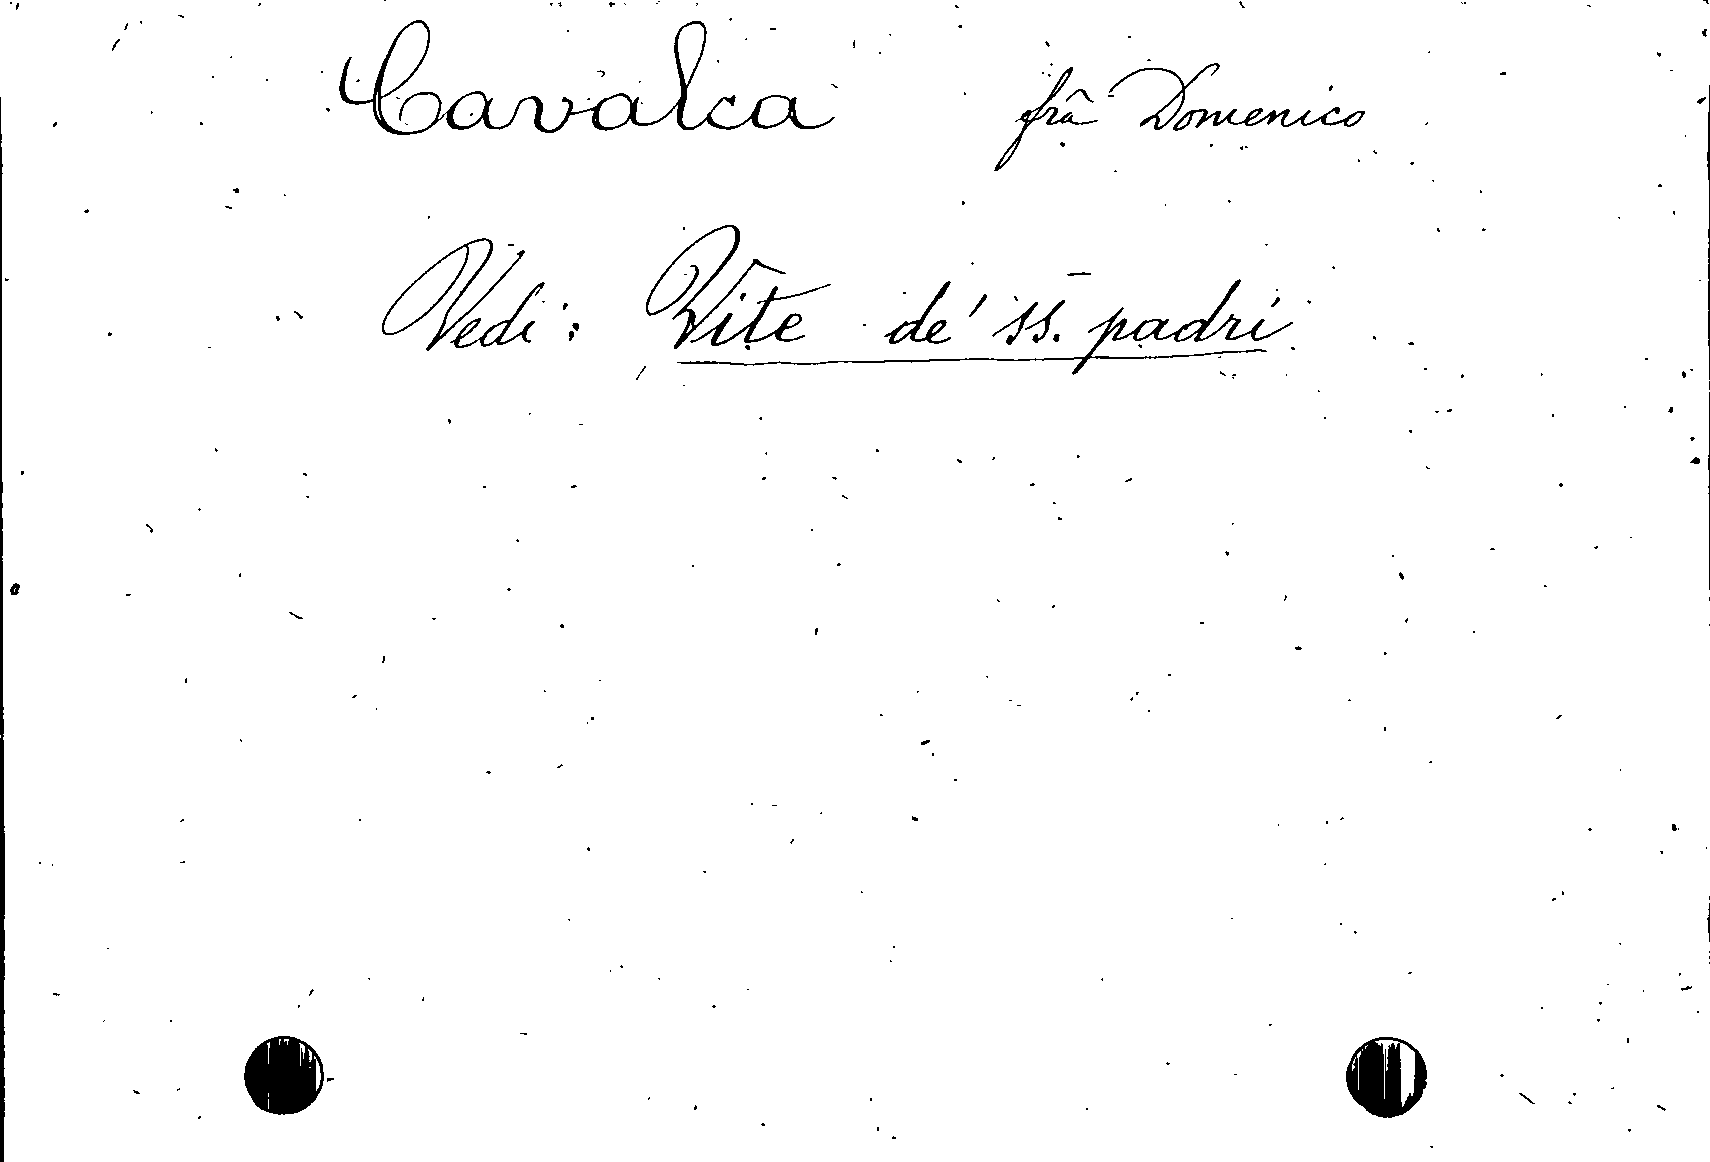 Cavalca frâ Domenico
Vedi: Vite de' ss. padri